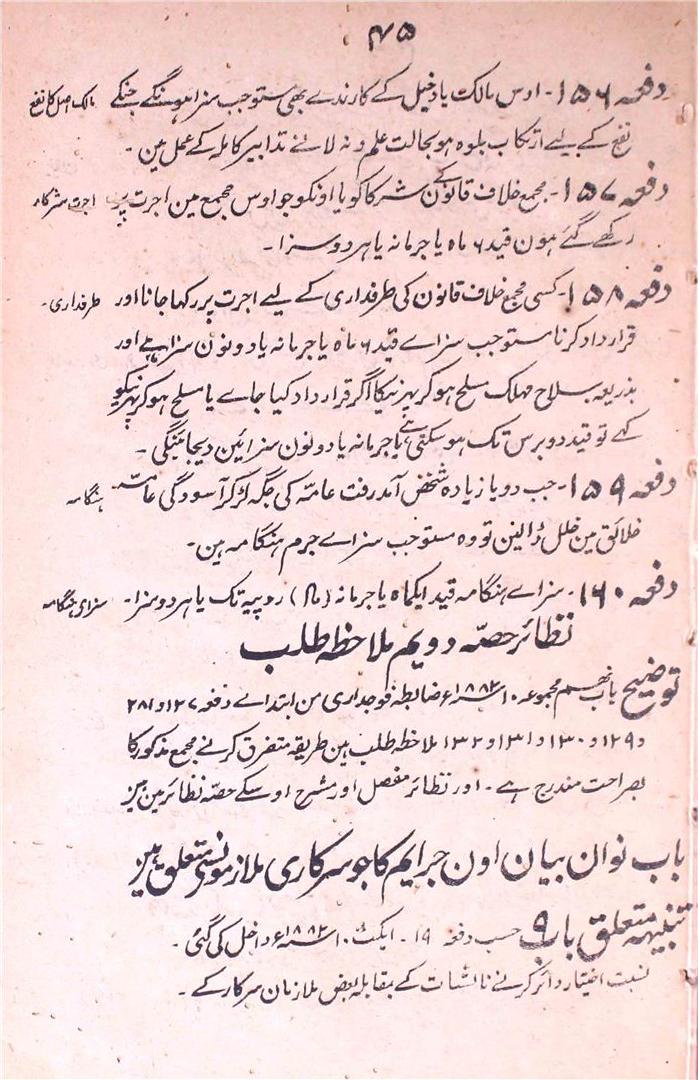 ۴۵
دفعہ ۱۵۶۔ اوس مالک یا دخیل کے کارندے بھی مستوجب سزا ہونگے جنکے مالک اصل کا نفع
نفع کے لیے ارتکاب بلوہ ہو بحالت علم و نہ لانے تدابیر کاملہ کے عمل مین۔
دفعہ ۱۵۷۔ مجمع خلاف قانون کے شرکا کو یا اونکو جو اوس مجمع مین اجرت پر اجرت شرکار
رکھے گئے ہون قید ۶ ماہ یا جرمانہ یا ہر دو سزا۔
دفعہ ۱۵۸۔ کسی مجمع خلاف قانون کی طرفداری کے لیے اجرت پر رکھا جانا اور طرفداری۔
قرارداد کرنا مستوجب سزاے قید ۶ ماہ یا جرمانہ یا دونون سزا ہے اور
بذریعہ سلاح مہلک مسلح ہو کر پھرنیکا اگر قرارداد کیا جاے یا مسلح ہو کر پھرنیکو
کہے تو قید دو برس تک ہو سکتی ہے یا جرمانہ یا دونون سزائین دیجائینگی۔
دفعہ ۱۵۹۔ جب دو یا زیادہ شخص آمد رفت عامّہ کی جگہ لڑکر آسودگی عامہ ہنگامہ
خلائق مین خلل ڈالین تو وہ مستوجب سزاے جرم ہنگامہ ہین۔
دفعہ ۱۶۰۔ سزاے ہنگامہ قید ایکماہ یا جرمانہ روپیہ تک یا ہر دو سزا۔ سزای ہنگامہ
نظائر حصّہ دویم ملاحظہ طلب
توضیح باب نہم مجموعہ ۱۰ ۱۸۸۲ء ضابطہ فوجداری من ابتداے دفعہ ۱۲۷ و ۱۲۸
و ۱۲۹ و ۱۳۰ و ۱۳۱ و ۱۳۲ ملاحظہ طلب ہین طریقہ متفرق کرنے مجمع مذکور کا
بصراحت مندرج ہے۔ اور نظائر مفصل اور مشرح اوسکے حصّہ نظائر مین ہین
باب نوان بیان اون جرایم کا جو سرکاری ملازمونسے متعلق ہین
تنبیہ متعلق باب ۹ حسب دفعہ ۱۹۔ ایکٹ ۱۰ ۱۸۸۲ء داخل کی گئی۔
نسبت اختیار دائر کرنے نالشات کے بمقابلہ بعض ملازمان سرکار کے۔